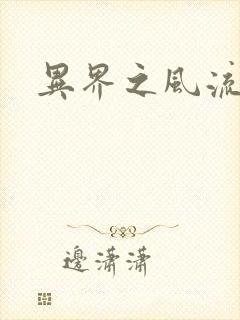 異界之風流
邊瀟瀟